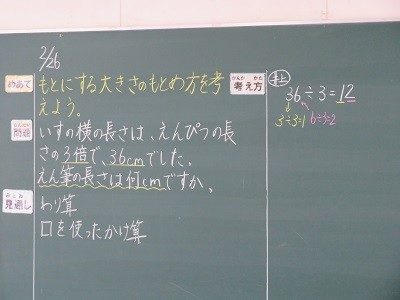 2/26
めあて
もとにする大きさのもとめ方を考
えよう。
問題
いすの横の長さは、えんぴつの長
さの3倍で、36cmでした。
えん筆の長さは何cmですか。
見通し
わり算
口を使ったかけ算
考え方
36÷3=12
3÷3=1 6÷3=2